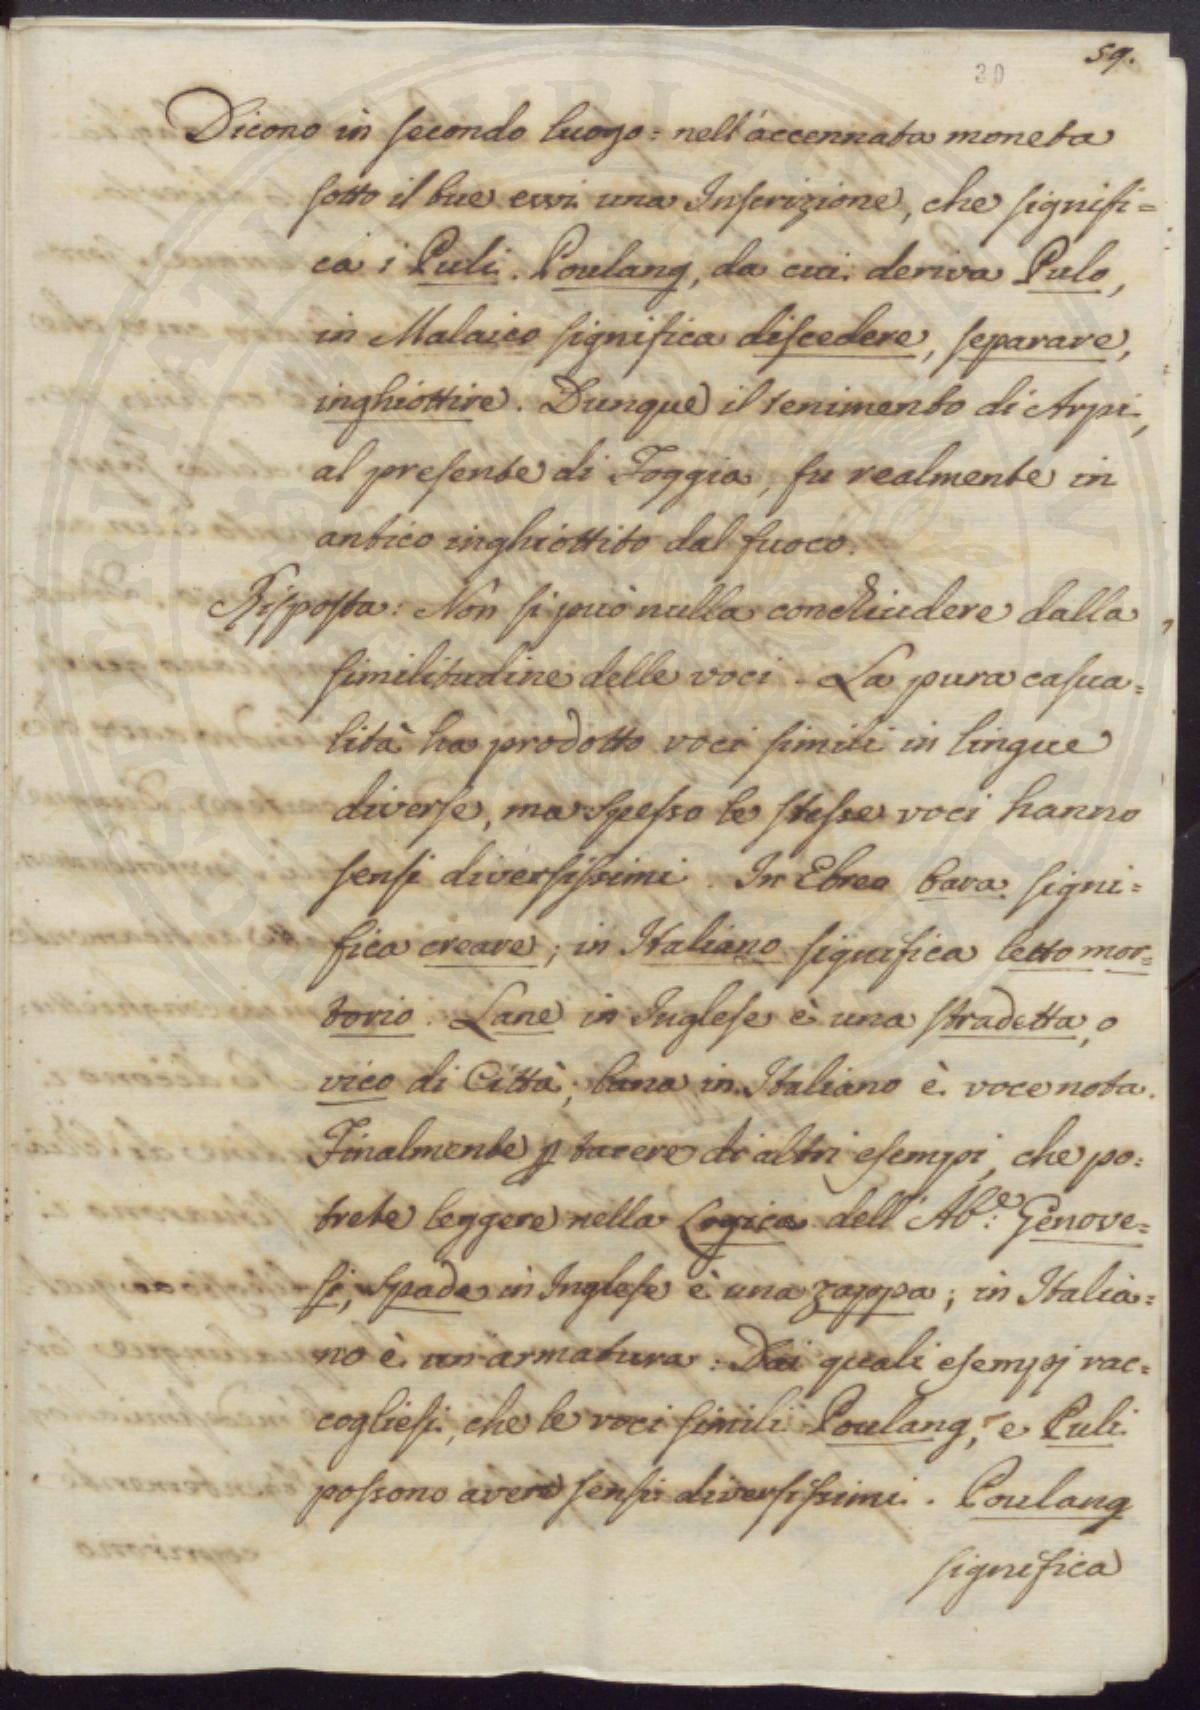 59.
30
Dicono in secondo luogo = nell'accennata moneta
sotto il bue evvi una Inscrizione, che signifi=
ca : Puli. Poulang, da cui deriva Pulo,
in Malaico significa discedere, separare,
inghiottire. Dunque il tenimento di Arpi,
al presente di Foggia, fu realmente in
antico inghiottito dal fuoco.
Risposta: Non si può nulla conchiudere dalla
similitudine delle voci. La pura casua=
lità ha prodotto voci simili in lingue
diverse, ma spesso le stesse voci hanno
sensi diversissimi. In Ebreo bara signi=
fica creare; in Italiano significa letto mor=
torio. Lane in Inglese è una stradetta, o
vico di Città; lana in Italiano è voce nota.
Finalmente p tacere di altri esempi, che po=
trete leggere nella Logica dell'Ab.e Genove=
si, Spade in Inglese è una zappa; in Italia=
no è un'armatura: Dai quali esempj rac=
cogliesi, che le voci simili Poulang, e Puli
possono avere sensi diversissimi. Poulang
significa